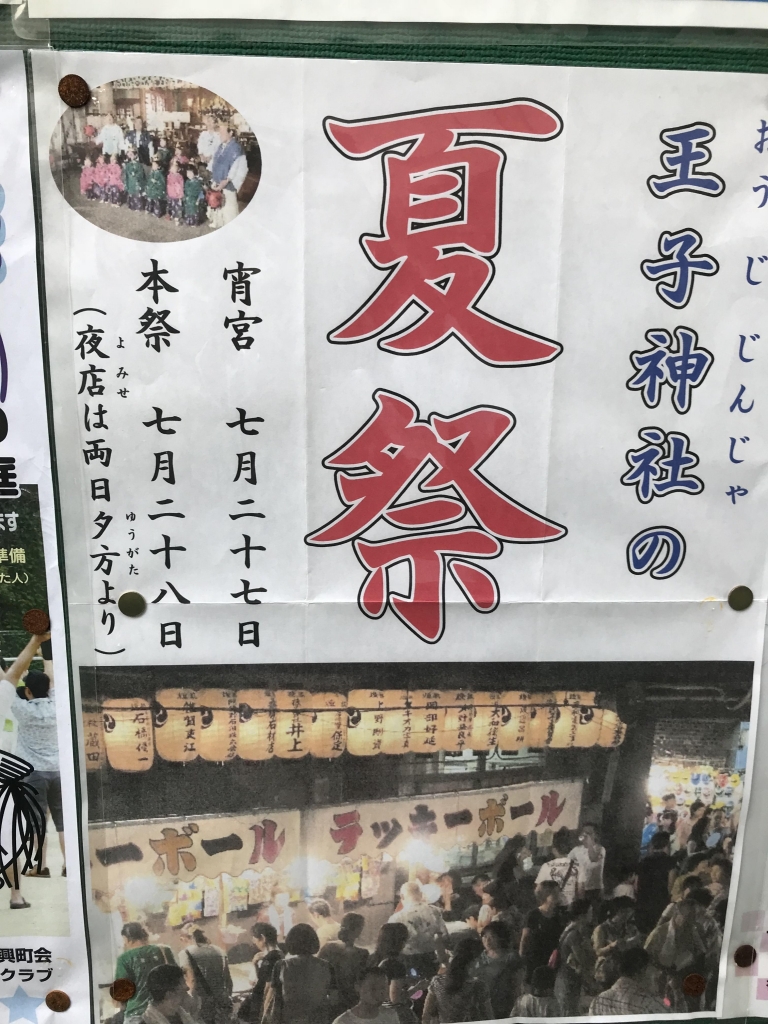 おうじじんじゃ
王子神社の
夏祭
宵宮 七月二十七日
本祭 七月二十八日
よみせ ゆうがた
(夜店は両日夕方より)
井上
蔵田
ーボール
ラッキーボール
ます
準備
た人)
興町会
クラブ